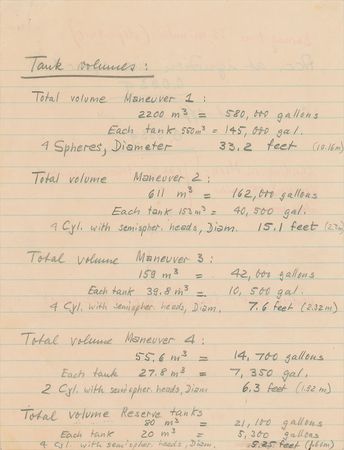 Tank volumes:
Total volume Maneuver 1:
2200 m³ = 580,000 gallons
Each tank 550m³ = 145,000 gal.
4 Spheres, Diameter 33.2 feet (10.16m)
Total volume Maneuver 2:
611 m³ = 162,000 gallons
Each tank 152m³ = 40,500 gal.
4 Cyl. with semispher. heads, Diam. 15.1 feet
Total volume Maneuver 3:
159 m³ = 42,000 gallons
Each tank 39.8 m³ = 10,500 gal.
4 Cyl. with semispher. heads, Diam. 7.6 feet (2.32m)
Total volume Maneuver 4:
55.6 m³ = 14,700 gallons
Each tank 27.8 m³ = 7,350 gal.
2 Cyl. with semispher. heads, Diam 6.3 feet (1.92m)
Total volume Reserve tanks
80 m³ = 21,100 gallons
Each tank 20 m³ = 5,300 gallons
4 Cyl. with semispher. heads, Diam. 5.25 feet (1.61m)